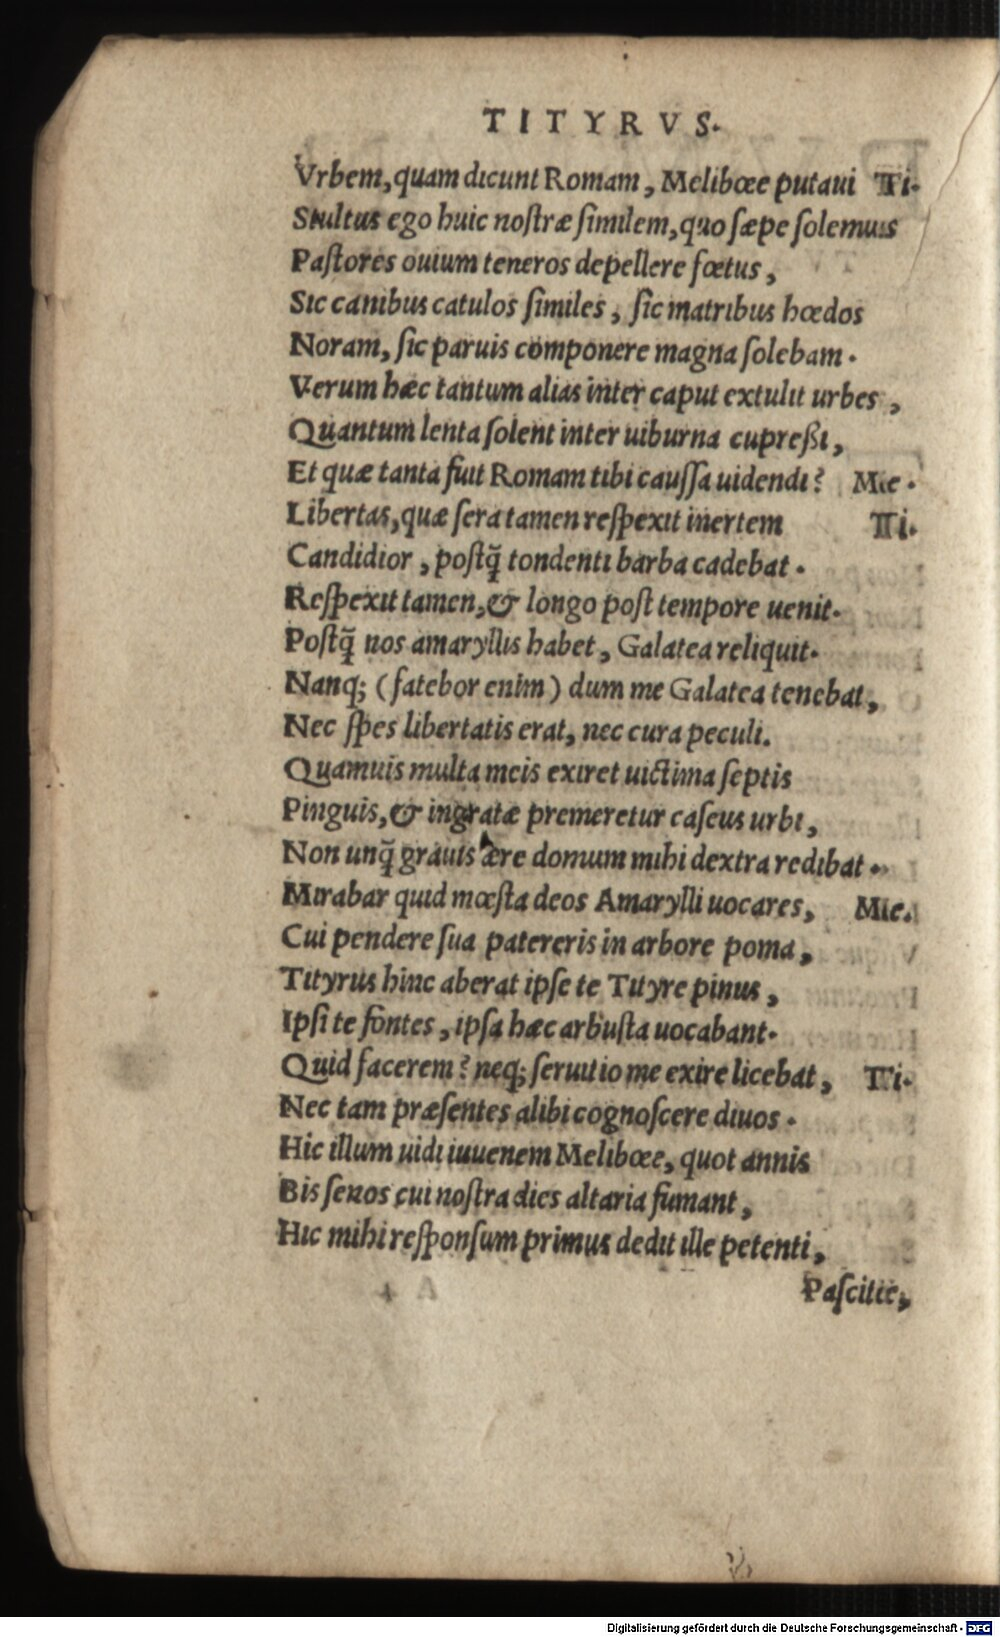 TITYRVS.
Vrbem, quam dicunt Romam, Melibœe putaui Ti.
Stultus ego huic nostræ similem, quo sæpe solemus
Pastores ouium teneros depellere fœtus,
Sic canibus catulos similes, sic matribus hœdos
Noram, sic paruis componere magna solebam.
Verum hæc tantum alias inter caput extulit urbes,
Quantum lenta solent inter uiburna cupreßi,
Et quæ tanta fuit Romam tibi caussa uidendi? Me.
Libertas, quæ sera tamen respexit inertem Ti.
Candidior, postq̃ tondenti barba cadebat.
Respexit tamen, & longo post tempore uenit.
Postq̃ nos amaryllis habet, Galatea reliquit.
Nanq; (fatebor enim) dum me Galatea tenebat,
Nec spes libertatis erat, nec cura peculi.
Quamuis multa meis exiret uictima septis
Pinguis, & ingratæ premeretur caseus urbi,
Non unq̃ grauis ære domum mihi dextra redibat.
Mirabar quid mœsta deos Amarylli uocares, Me.
Cui pendere sua patereris in arbore poma,
Tityrus hinc aberat ipse te Tityre pinus,
Ipsi te fontes, ipsa hæc arbusta uocabant.
Quid facerem? neq; seruitio me exire licebat, Ti.
Nec tam præsentes alibi cognoscere diuos.
Hic illum uidi iuuenem Melibœe, quot annis
Bis senos cui nostra dies altaria fumant,
Hic mihi responsum primus dedit ille petenti,
Pascite,
Digitalisierung gefördert durch die Deutsche Forschungsgemeinschaft - DFG